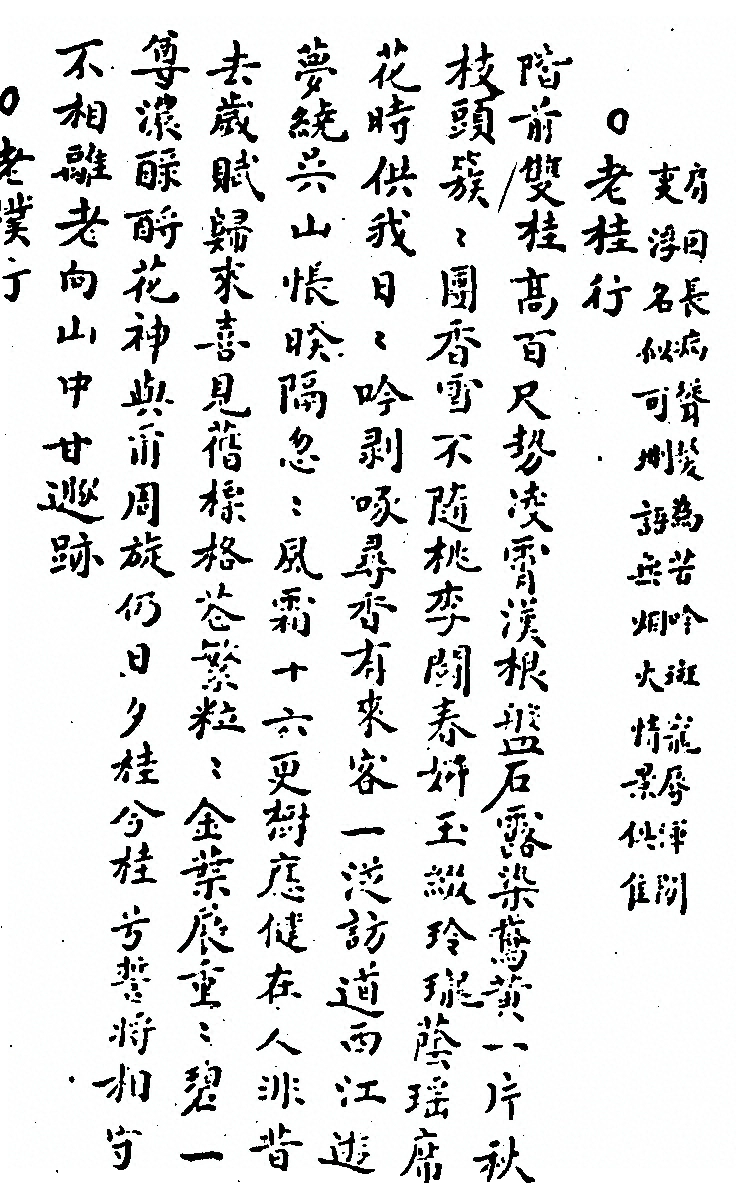 肩回長病聳髮為苦吟斑寵辱渾閒
事浮名似可刪語無烟火情景俱佳
○老桂行
階前雙桂高百尺勢凌霄漢根盤石露染鶯黄一片秋
枝頭簇〻團香雪不随桃李鬪春妍玉綴玲瓏蔭瑶席
花時供我日〻吟剥啄尋香有來客一從訪道西江遊
夢繞吳山悵暌隔忽〻風霜十六更樹應健在人非昔
去歲賦歸來喜見舊標格蒼繁粒〻金葉展重〻碧一
尊濃醁酹花神與爾周旋仍日夕桂兮桂兮誓將相守
不相離老向山中甘遯跡
○老僕行